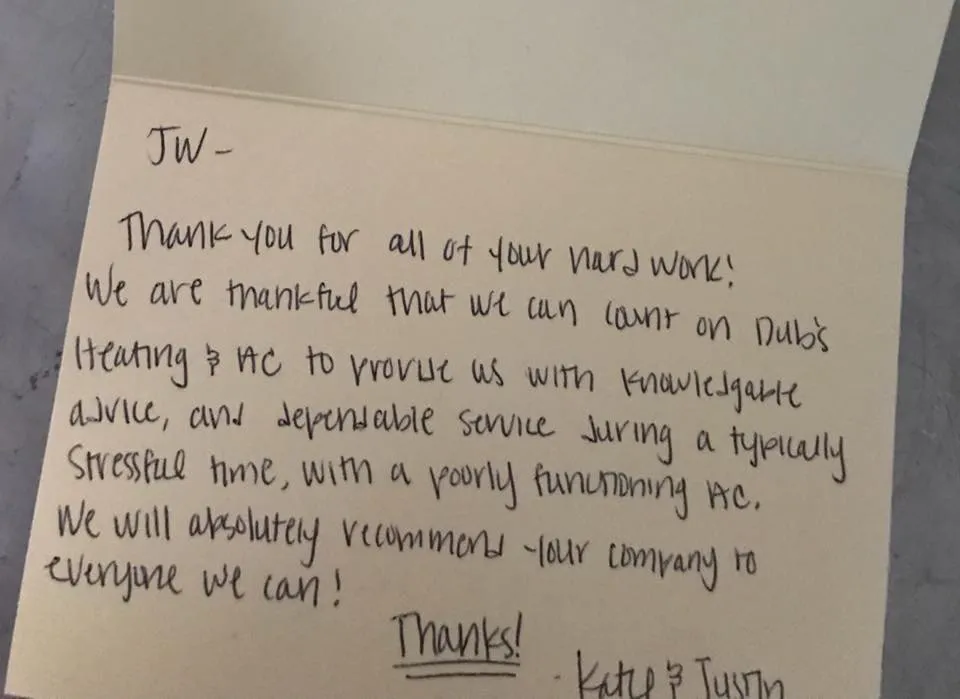 JW-
Thank you for all of your hard work!
We are thankful that we can count on Dub's
Heating & AC to provide us with knowledgable
advice, and dependable service during a typically
stressful time, with a poorly functioning AC.
We will absolutely recommend your company to
everyone we can!
Thanks!
- Katie & Justin